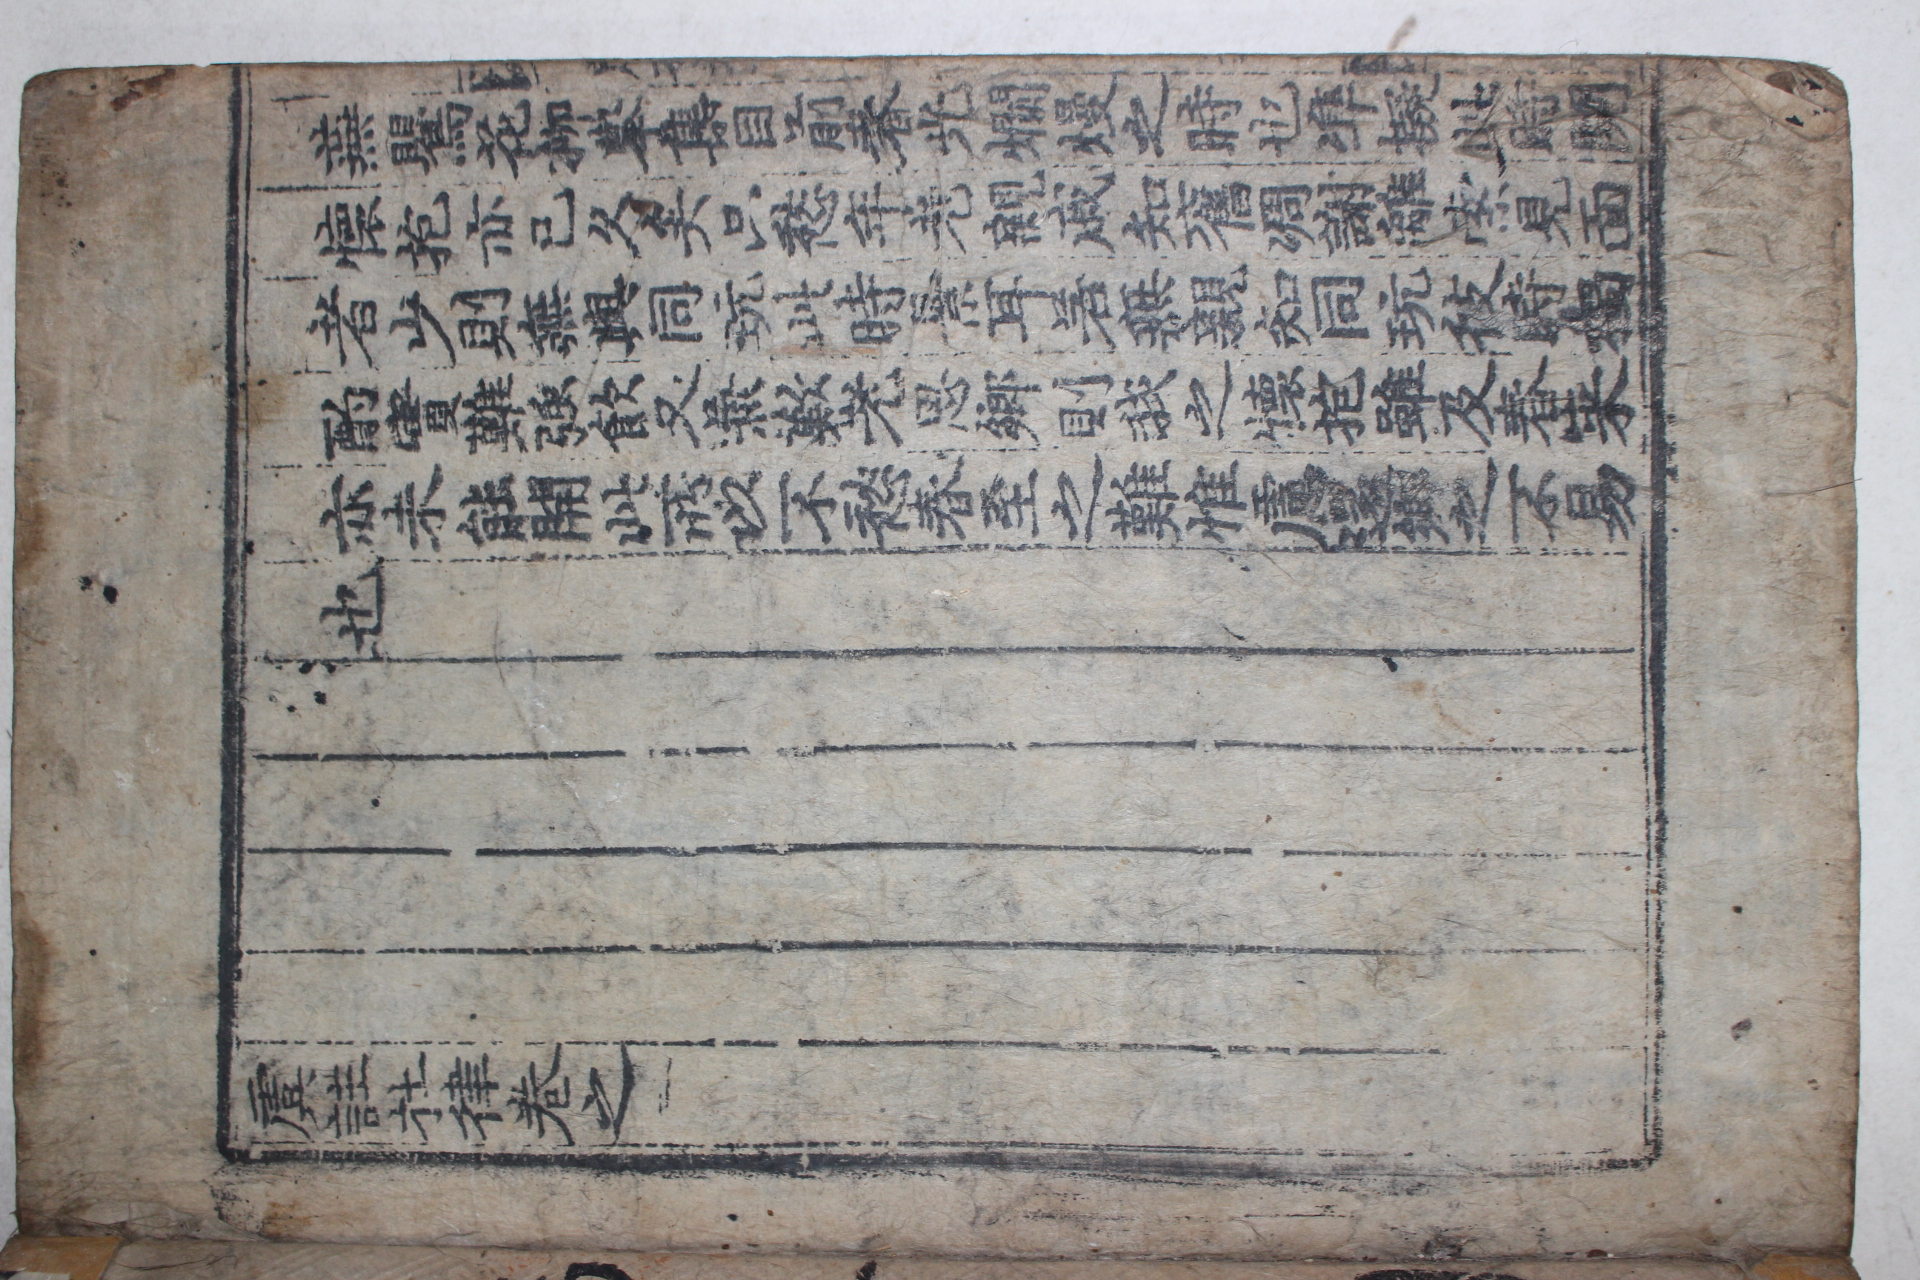 燕鸎花柳擧集目前春光爛熳之時也準擬此時開
懷抱亦已久矣只愁年老親戚知舊凋謝離索見面
者少則無與同玩此時景耳若無親知同玩彼時獨
酌實難強飮又兼歎老思鄉則我之懷抱雖及春来
亦未能開此所以不愁春至之難惟慮還鄉之不易
也
虞註杜律卷之一